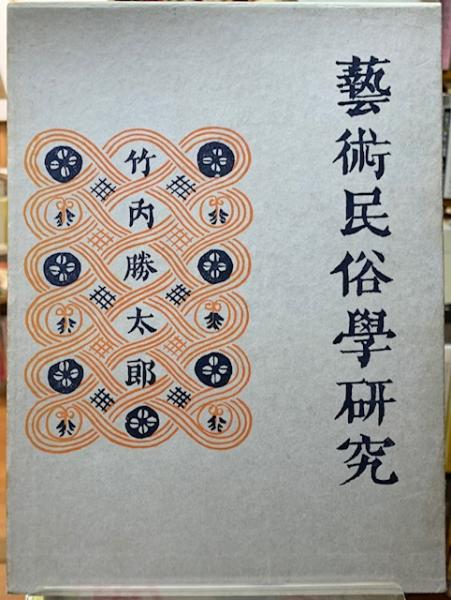 藝術民俗學研究
竹内勝太郎